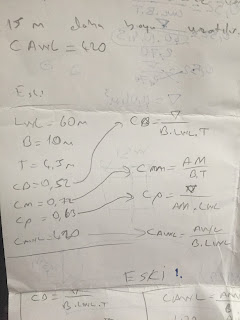 15 m daha boyu
CAWL = 420
Eski
LWL = 60m
B = 10m
T = 4,5m
CB = 0,52
Cm = 0,72
Cp = 0,63
CAWL = 420
CB = ∇ / B.LWL.T
CM = AM / B.T
CP = ∇ / AM.LWL
CAWL = AWL / B.LWL
ESKİ 1.
CB = ∇ / B.LWL.T
CAWL = AWL